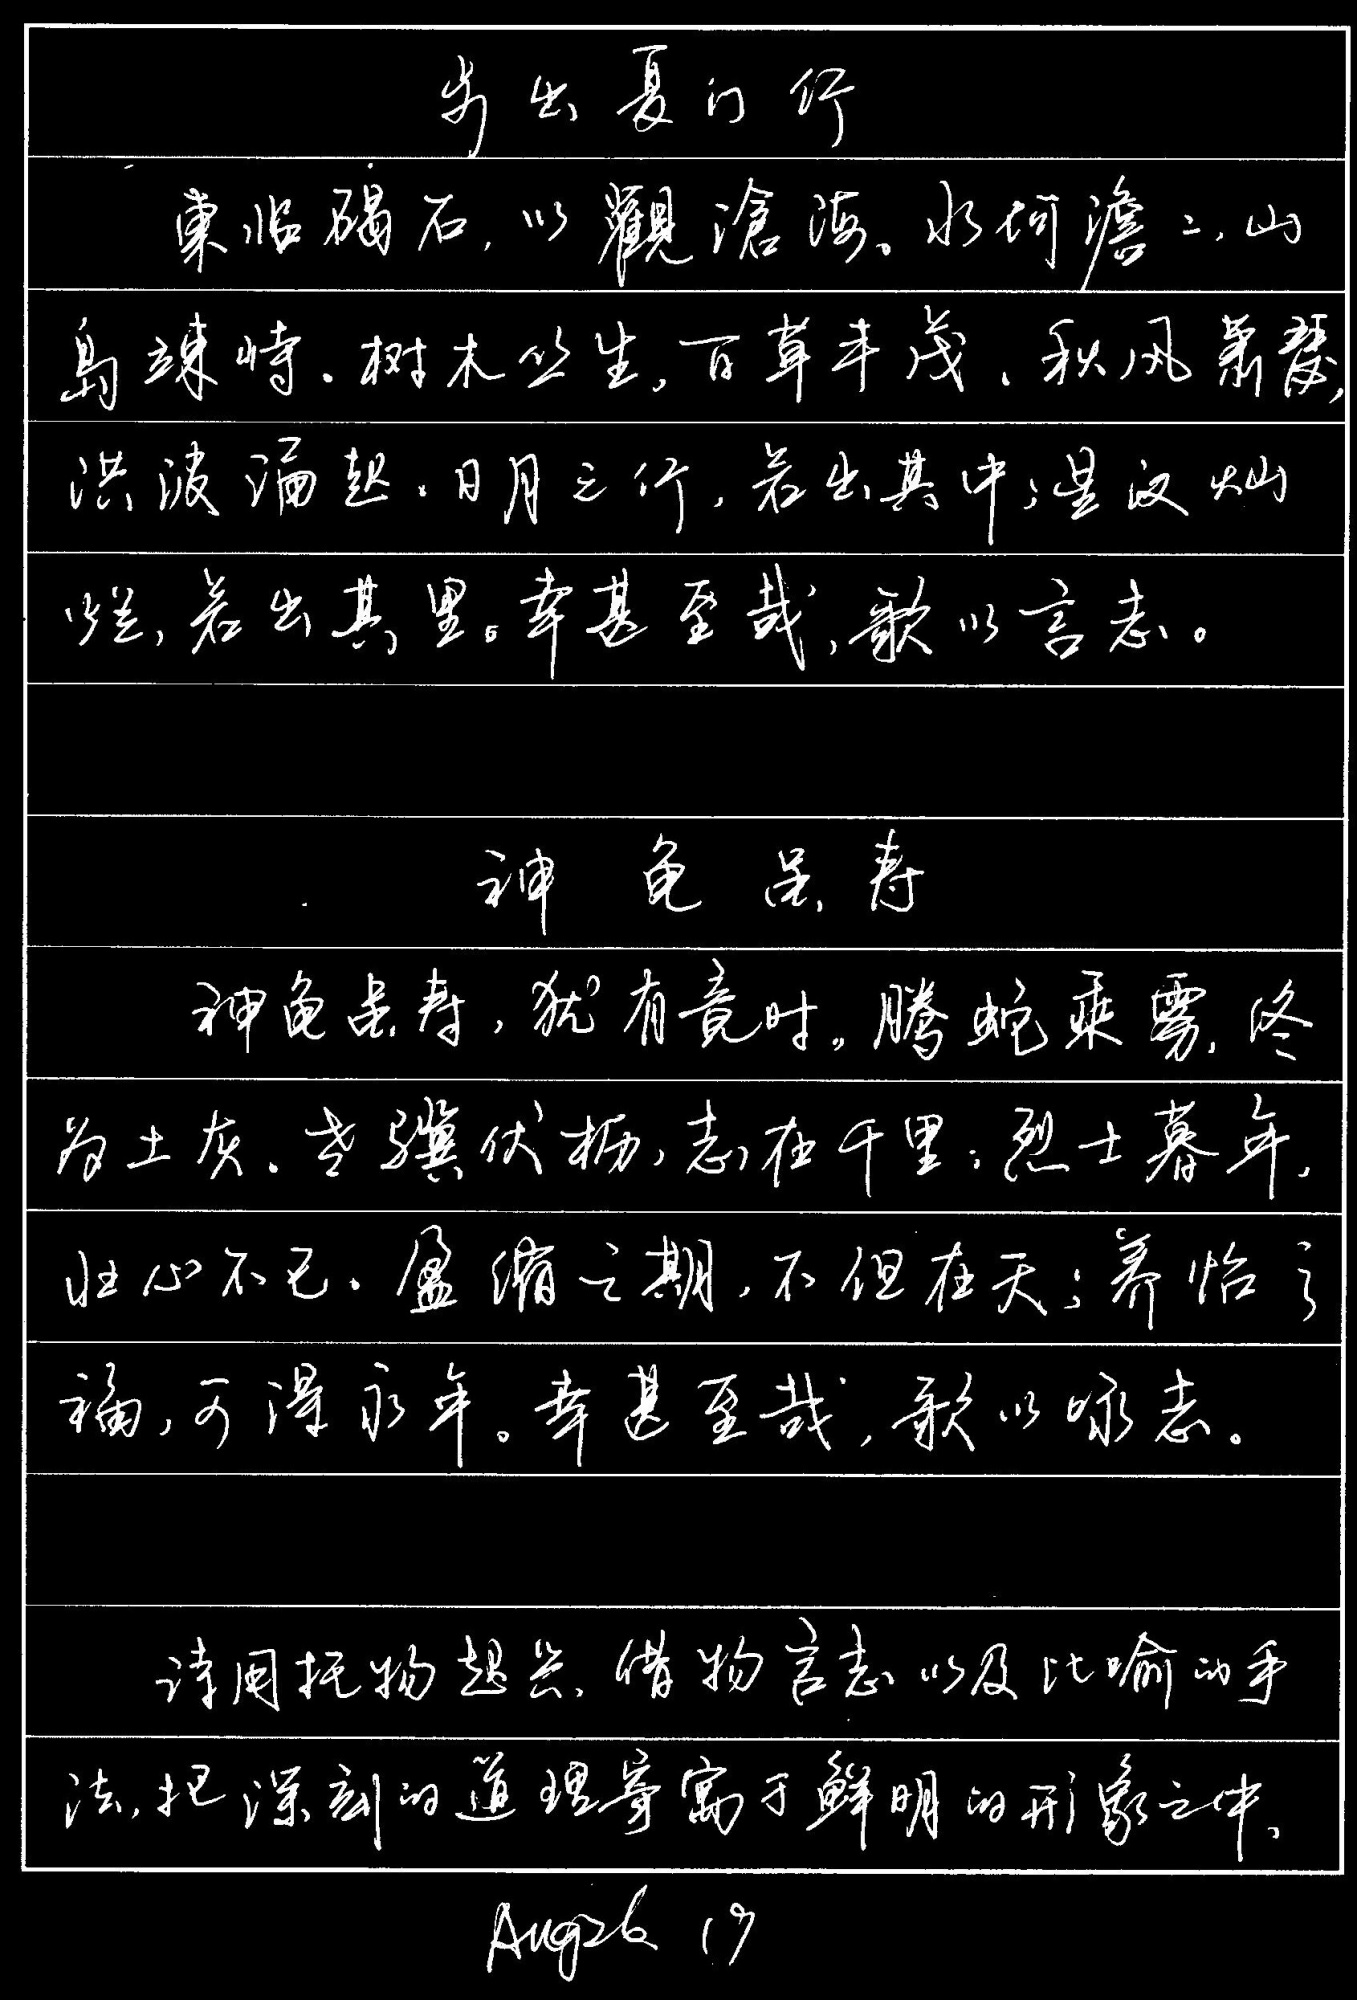 步出夏门行
東临碣石，以觀滄海。水何澹々，山
島竦峙。树木丛生，百草丰茂。秋风萧瑟，
洪波涌起。日月之行，若出其中；星汉灿
烂，若出其里。幸甚至哉，歌以言志。
神龟虽寿
神龟虽寿，犹有竟时。腾蛇乘雾，终
为土灰。老骥伏枥，志在千里；烈士暮年，
壮心不已。盈缩之期，不但在天；养怡之
福，可得永年。幸甚至哉，歌以咏志。
诗用托物起兴、借物言志以及比喻的手
法，把深刻的道理寄寓于鲜明的形象之中。
Aug26 19